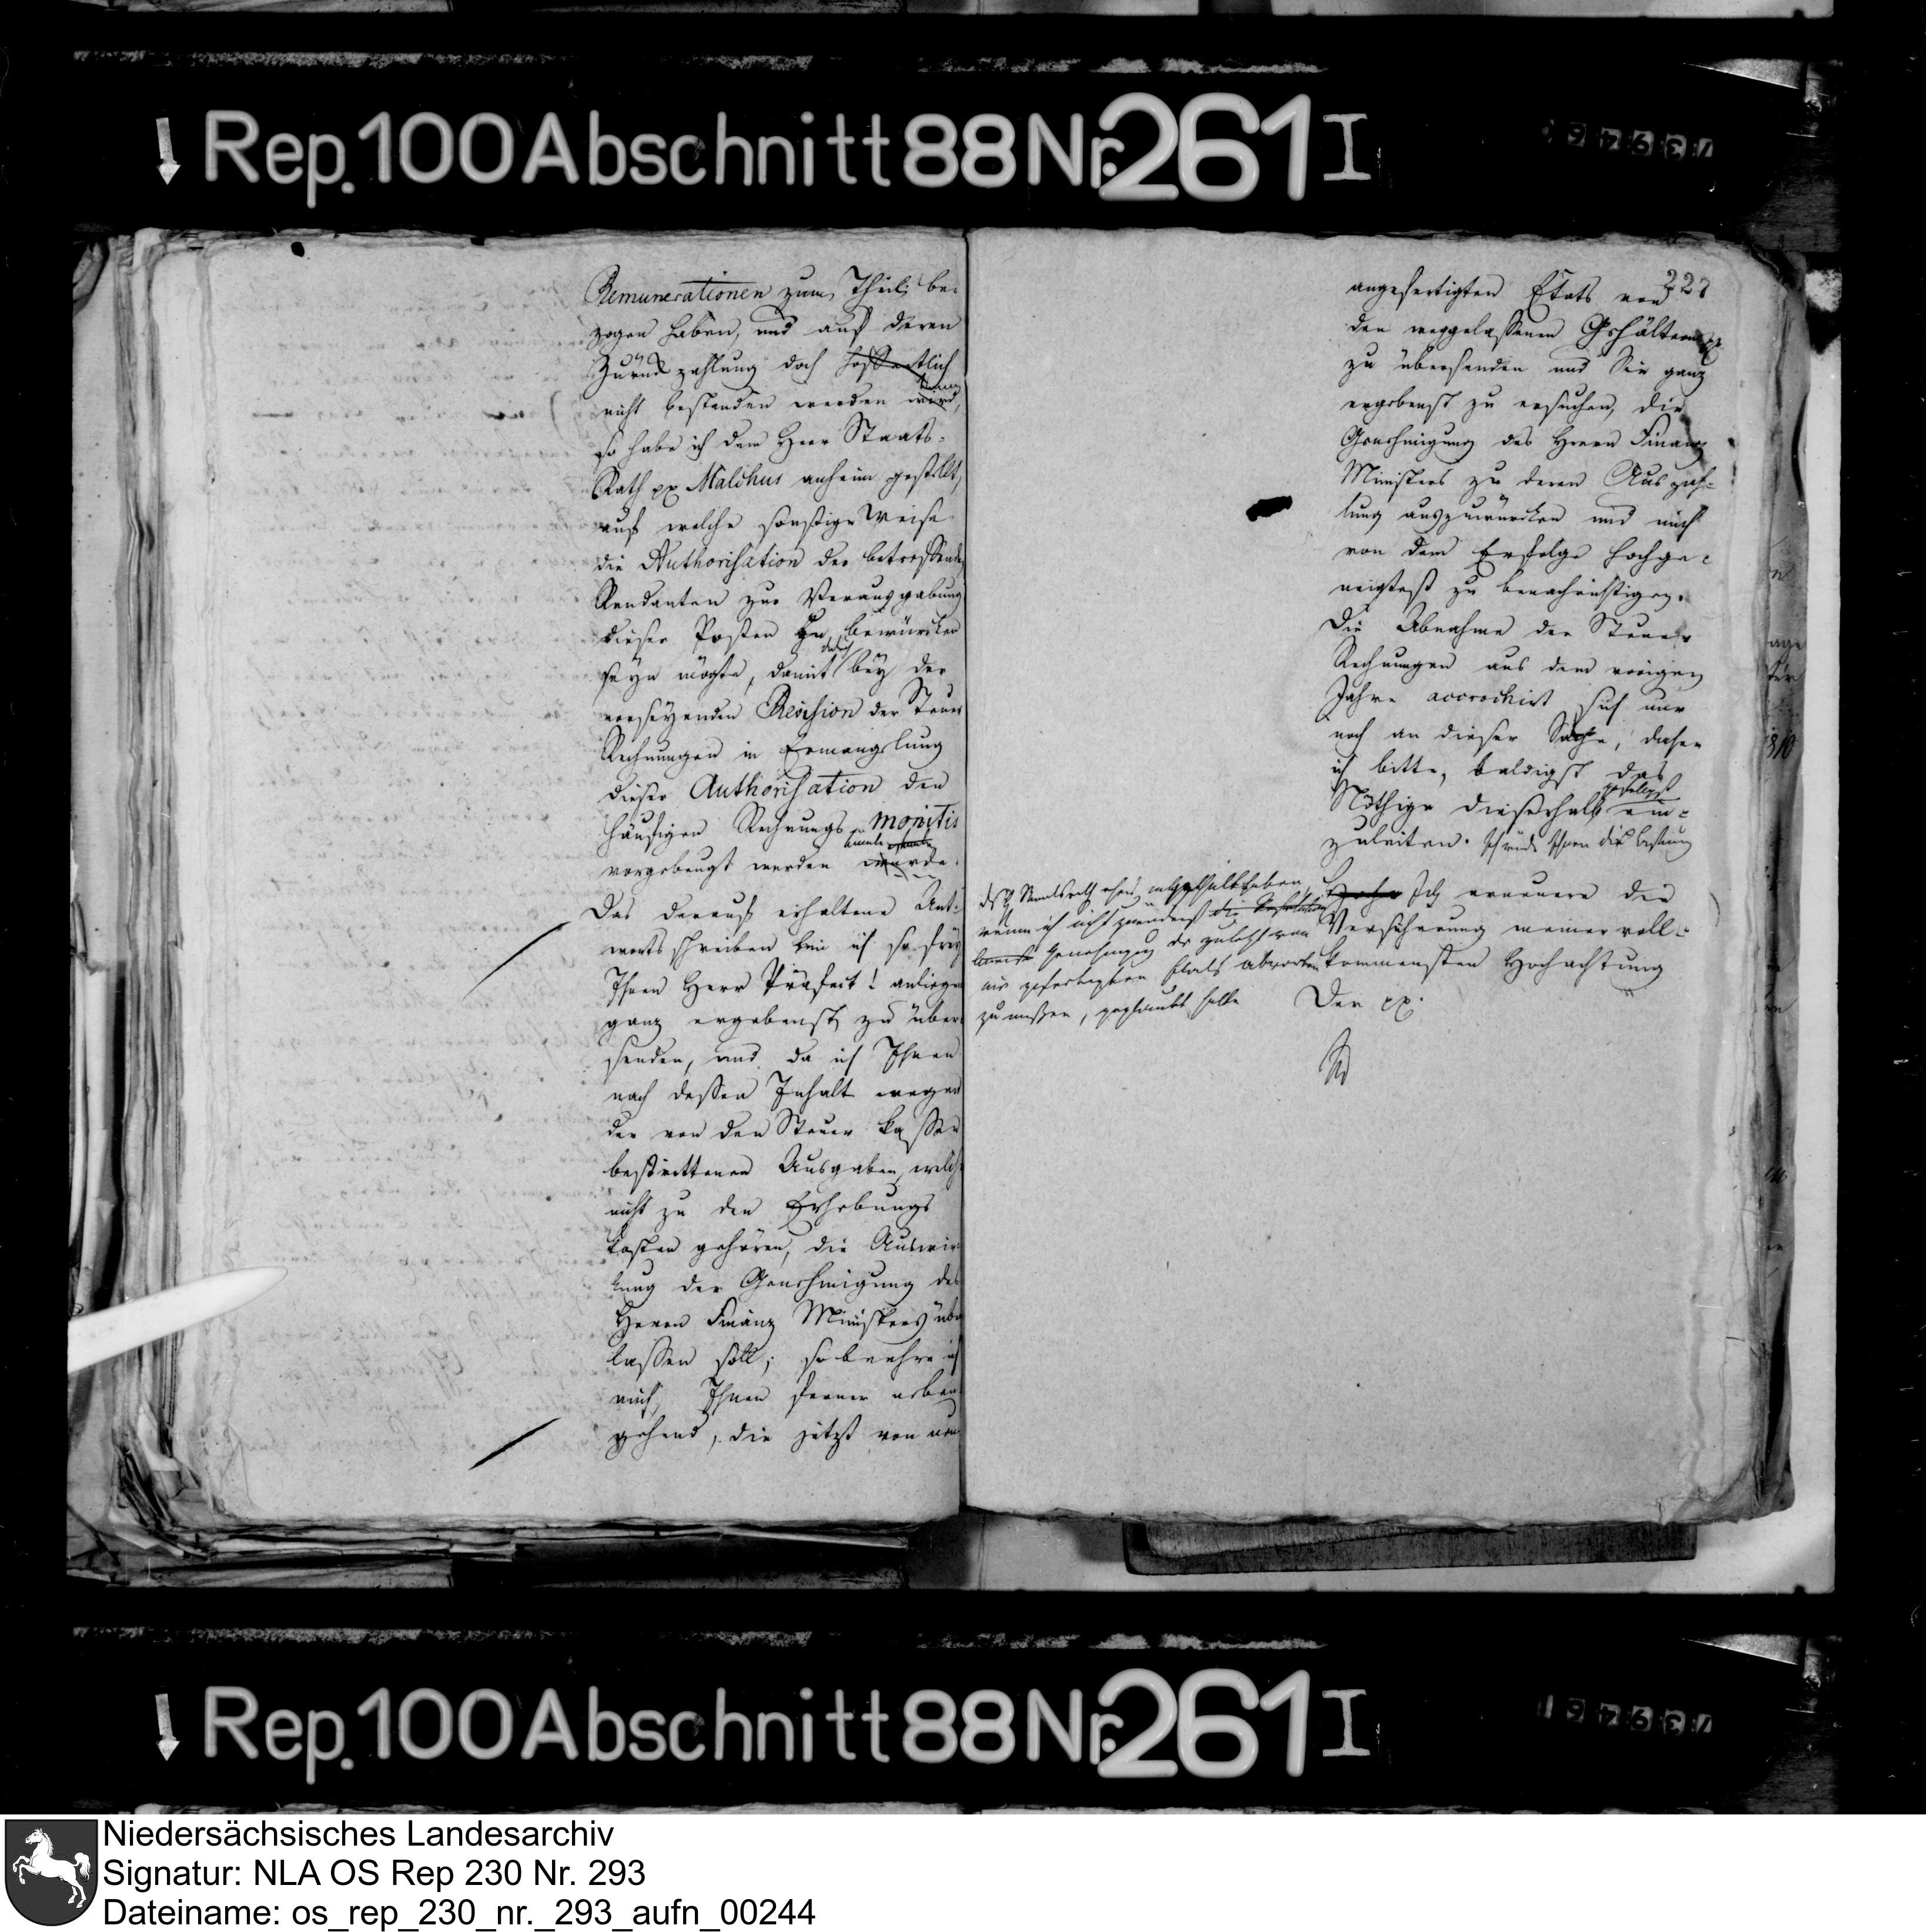 Rep. 100 Abschnitt 88 Nr. 261 I
Remunerationen zum Theil be-
zogen haben, und auf deren
Zurückzahlung doch hoffentlich
nicht bestanden werden wird,
so habe ich dem Herr Staats-
Rath pp Malchus anheim gestellt,
auf welche sonstige Weise
die Authorisation der betreffenden
Rendanten zur Verausgabung
dieser Posten zu bewürken
seyn mögte, damit bey der
vorseyenden Revision der Steuer
Rechnungen in Ermangelung
dieser Authorisation den
häufigen Rechnungs monitis
vorgebeugt werden würde.
Das darauf erhaltene Ant-
wortschreiben bin ich so frey
Ihnen Herr Präfect! anliegend
ganz ergebenst zu über
senden, und da ich Ihnen
nach dessen Inhalt wegen
der von den Steuer Kassen
bestrittenen Ausgaben, welche
nicht zu den Erhebungs
kosten gehören, die Auswir-
kung der Genehmigung des
Herrn Finanz Ministers über
lassen soll; so beehre ich
mich, Ihnen ferner neben
gehend, die jetzt von neu
227
angefertigten Etats von
den weggelassenen Gehältern pp
zu übersenden und Sie ganz
ergebenst zu ersuchen, die
Genehmigung des Herrn Finanz
Ministers zu deren Auszah-
lung auszuwürken und mich
von dem Erfolge hochge-
neigtest zu benachrichtigen.
Die Abnahme der Steuer
Rechnungen aus dem vorigen
Jahre accrochirt sich nur
noch an dieser Sache, daher
ich bitte, baldigst das
Nöthige dieserhalb gefälligst ein-
zuleiten. Ich würde Ihnen die
wenn ich nicht zuvörderst
Genehmigung der zuletzt von
mir gefertigten Etats abwarten
zu müßen, geglaubt hätte
Ich erneuere die
Versicherung meiner voll-
kommensten Hochachtung
Der pp.
Rep. 100 Abschnitt 88 Nr. 261 I
Niedersächsisches Landesarchiv
Signatur: NLA OS Rep 230 Nr. 293
Dateiname: os_rep_230_nr._293_aufn_00244